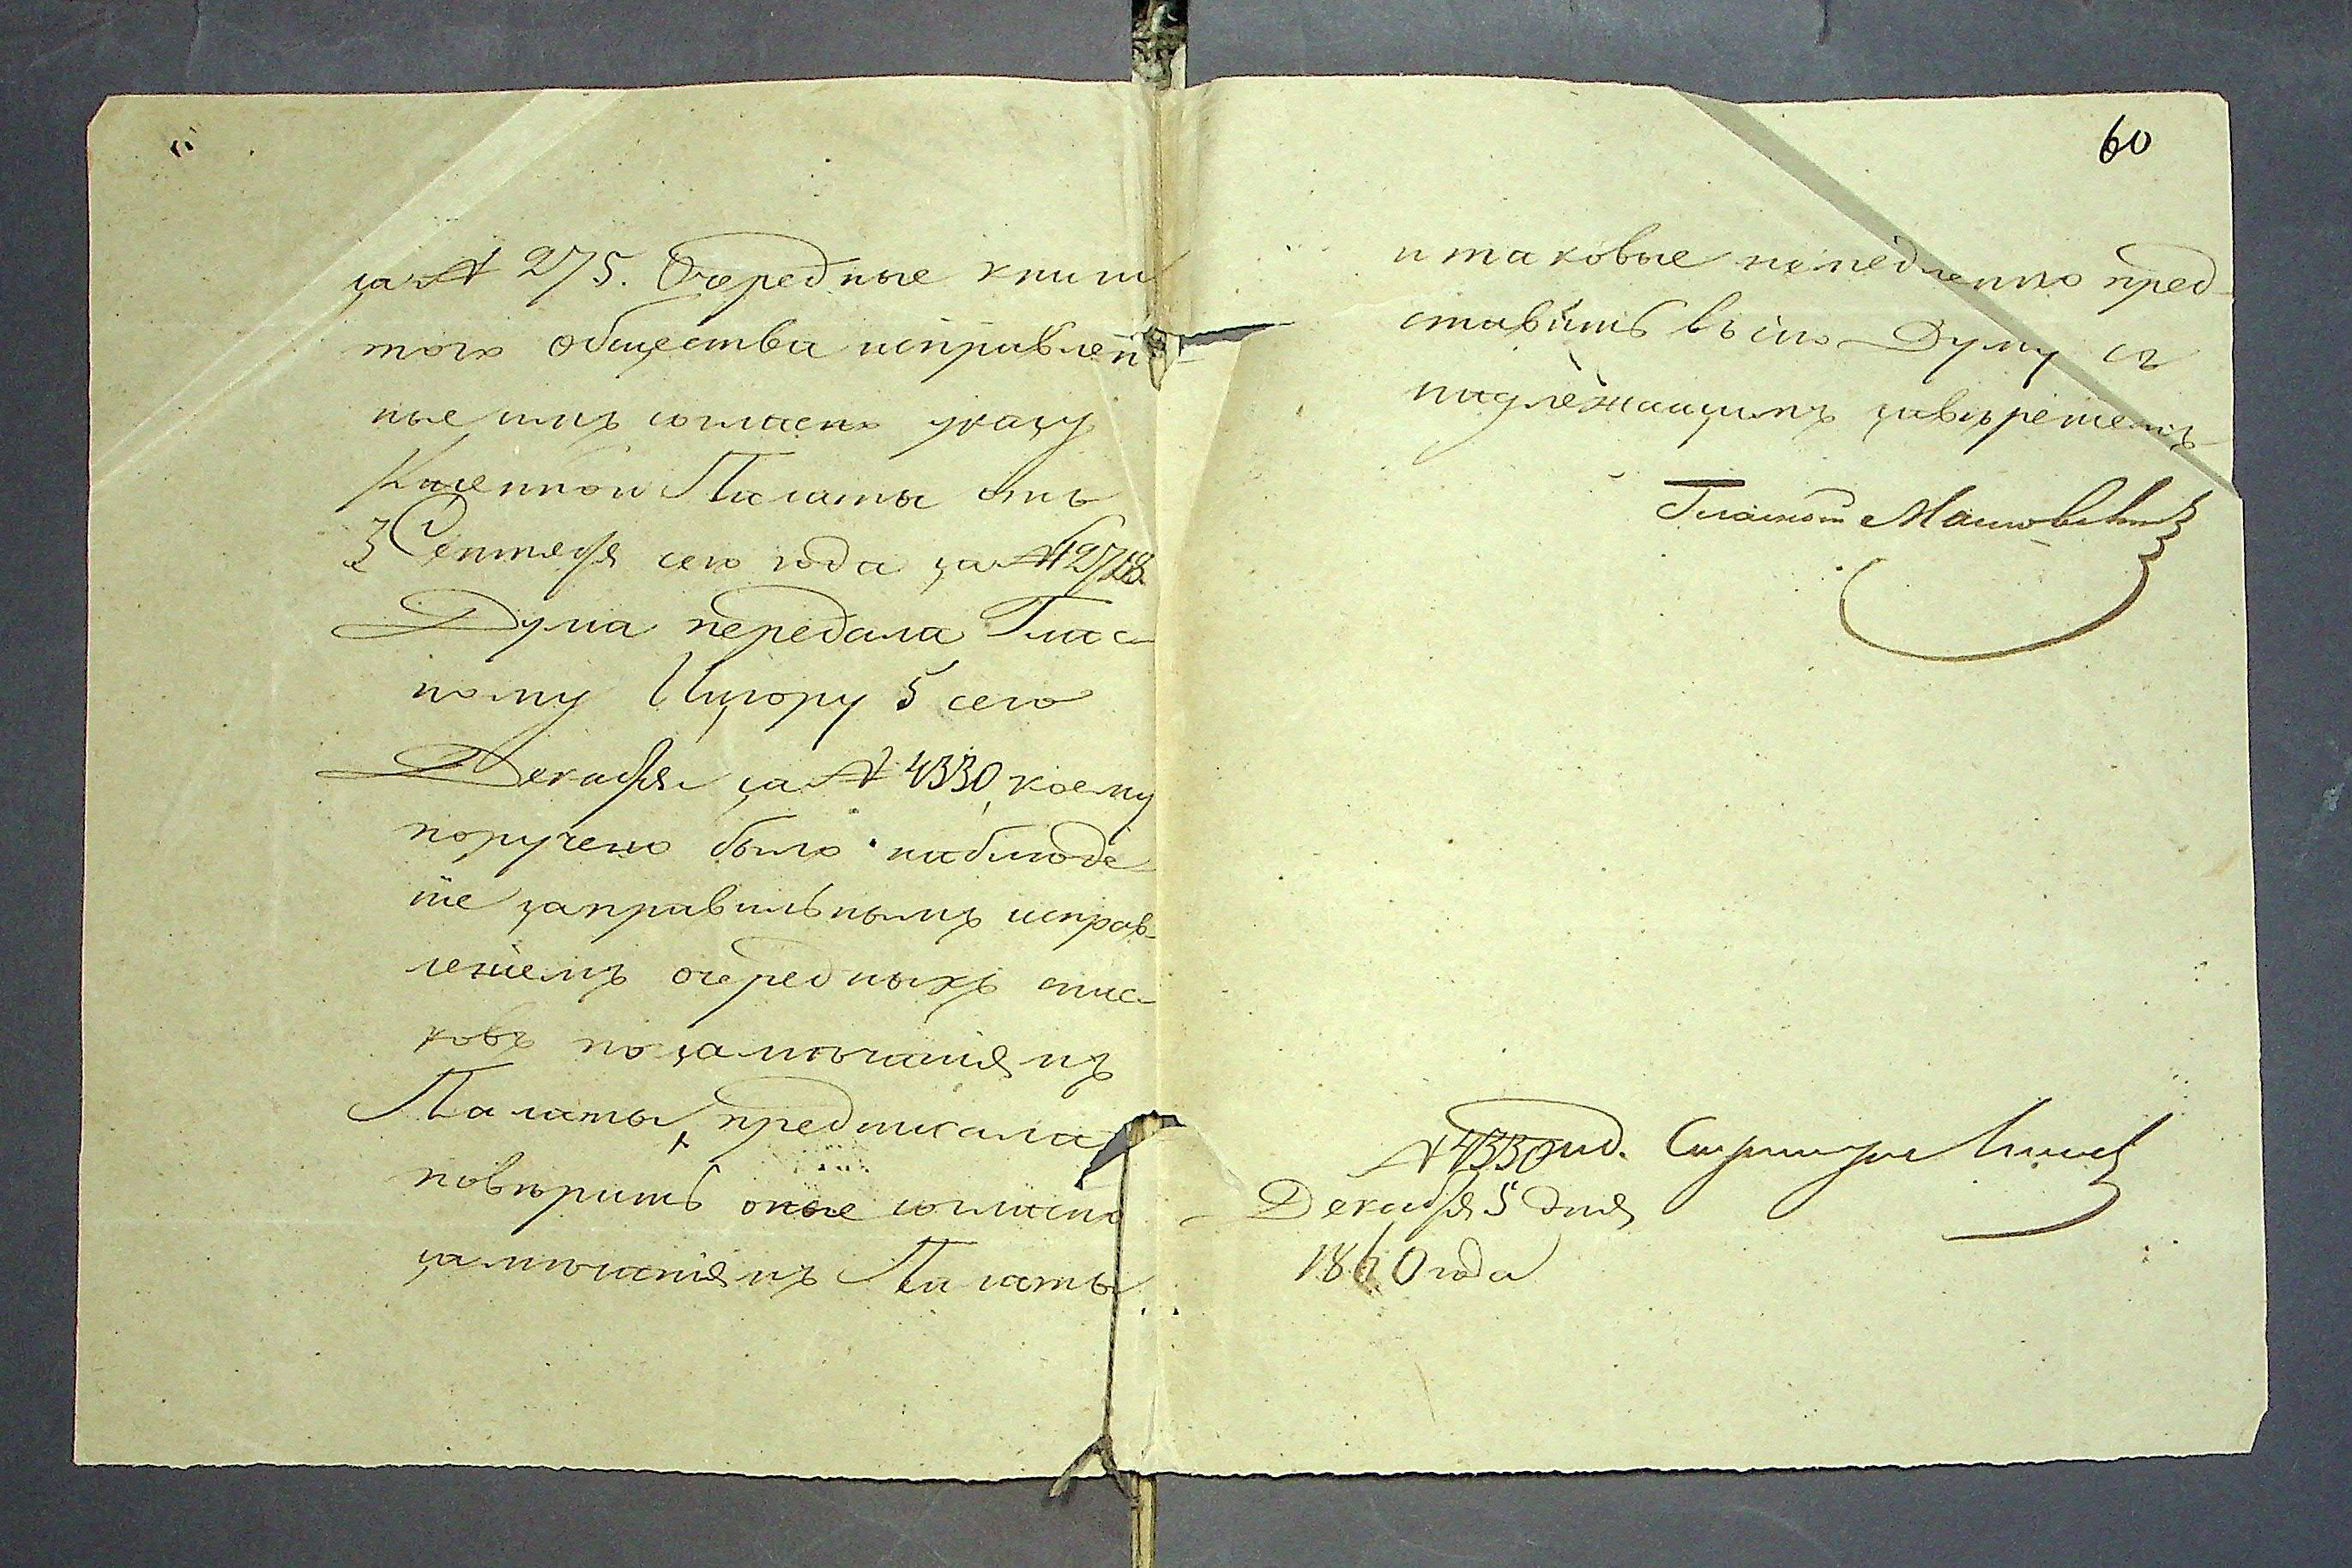 за № 275. Очередные книги
того общества исправлен-
ные имъ согласно указу
Казенной Палаты отъ
3 Сентября сего года за №
Дума передала Глас-
ному Цигору 5 сего
Декабря за № 4330, коему
поручено было наблюде
ніе за правильнымъ исправ-
леніемъ очередныхъ спис-
ковъ по замѣчаніямъ
Палаты, предписала
повѣрить оные согласно
замѣчаніямъ Палаты
60
и таковые немедленно пред-
ставить въ сію Думу съ
надлежащимъ завѣреніемъ
Гласный
№ 4330
Декабря 5 дня
1860 года